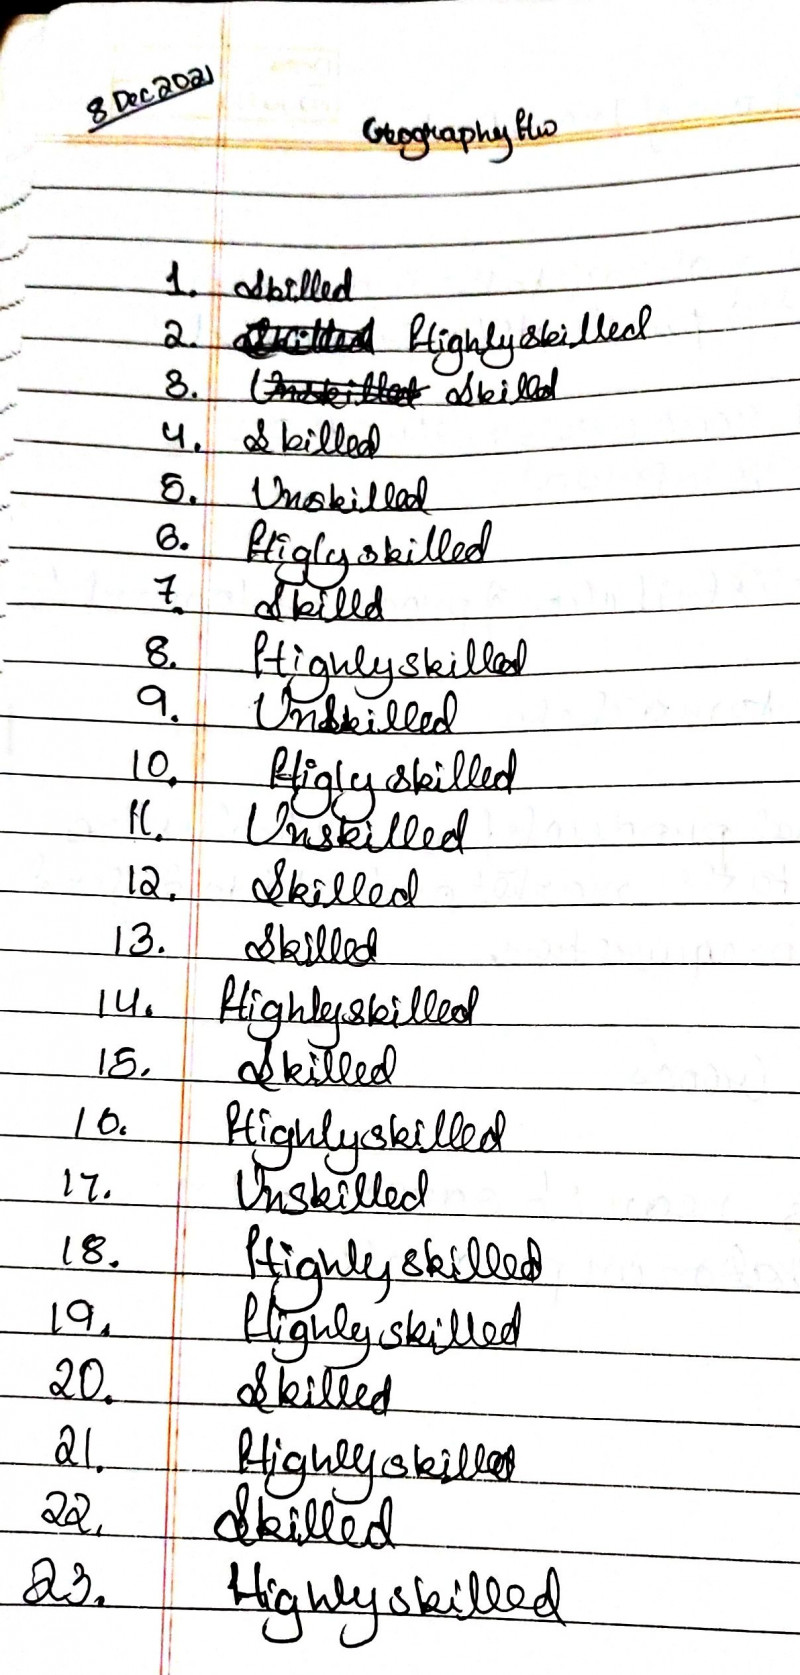 8 Dec 2021
Geography H/w
1. Skilled
2. Skilled Highly skilled
3. Unskilled Skilled
4. Skilled
5. Unskilled
6. Higly skilled
7. Skilld
8. Highly skilled
9. Unskilled
10. Higly skilled
11. Unskilled
12. Skilled
13. Skilled
14. Highly skilled
15. Skilled
16. Highly skilled
17. Unskilled
18. Highly skilled
19. Highly skilled
20. Skilled
21. Highly skilled
22. Skilled
23. Highly skilled